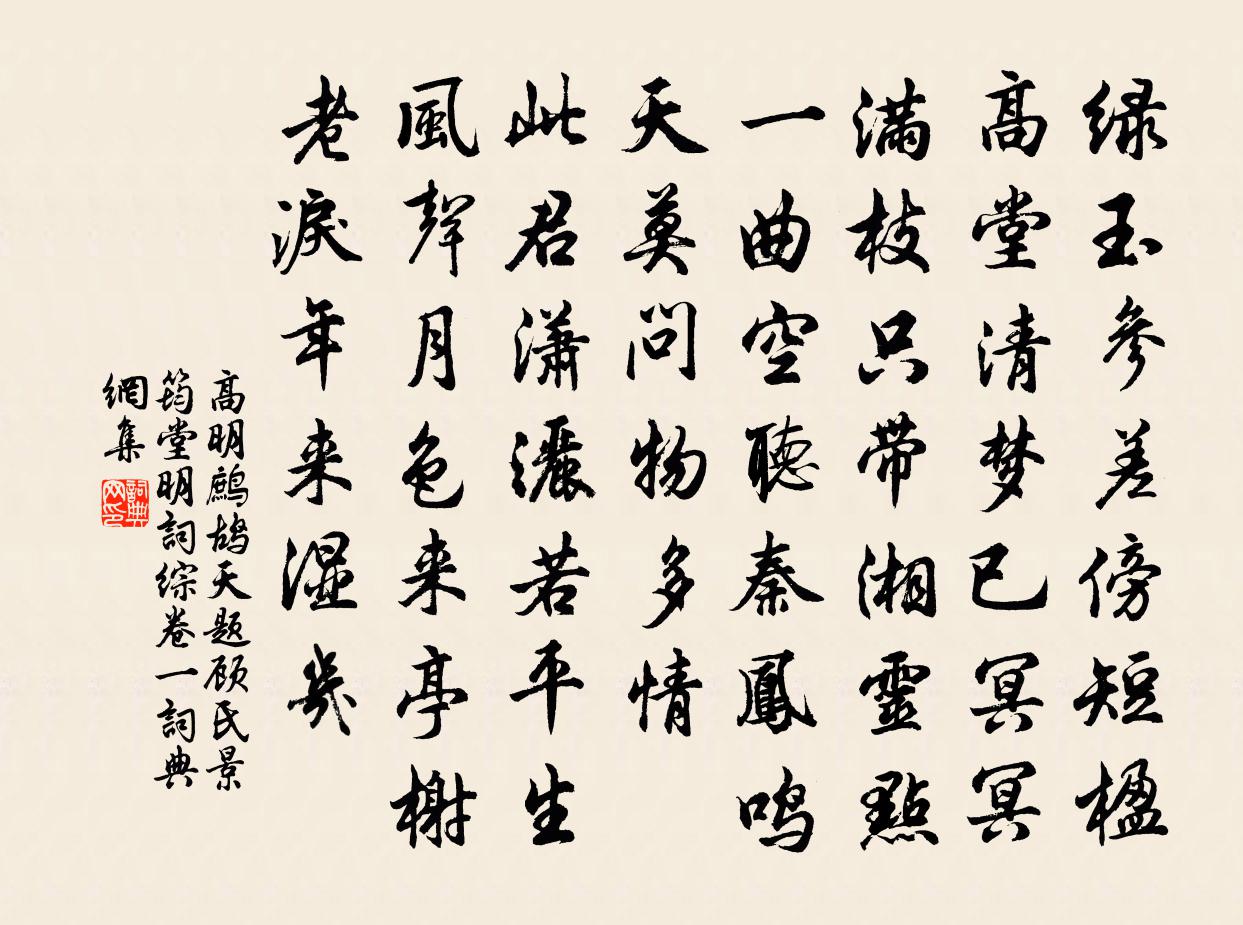 绿玉参差傍短楹
高堂清梦已冥冥
满枝只带湘靈點
一曲空聽秦鳳鸣
天莫问物多情
此君潇灑若平生
風聲月色来亭榭
老淚年来湿几
高明鹧鸪天题顾氏景
筠堂明詞综卷一詞典
網集
詞典网印